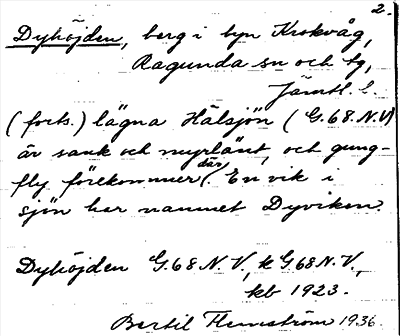 2.
Dyhöjden, berg i byn Krokvåg,
Ragunda sn och tg,
Jämtl. l.
(forts.) lägna Hälsjön (G.68.N.V)
är sank och myrlänt, och gung-
fly förekommer där. En vik i
sjön har namnet Dyviken.
Dyhöjden G.68.N.V, k G68N.V,
kb 1923.
Bertil Flemström 1936.